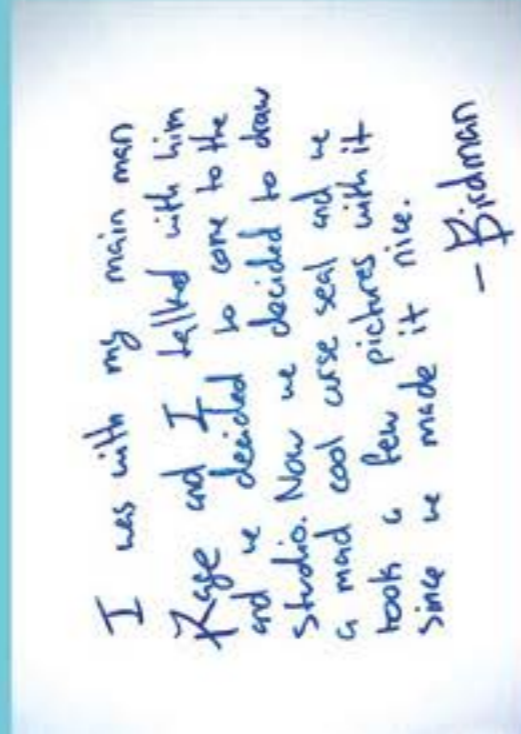 I was with my main man
Kage and I talked with him
and we decided to come to the
studio. Now we decided to draw
a mad cool curse seal and we
took a few pictures with it
since we made it nice.
- Birdman